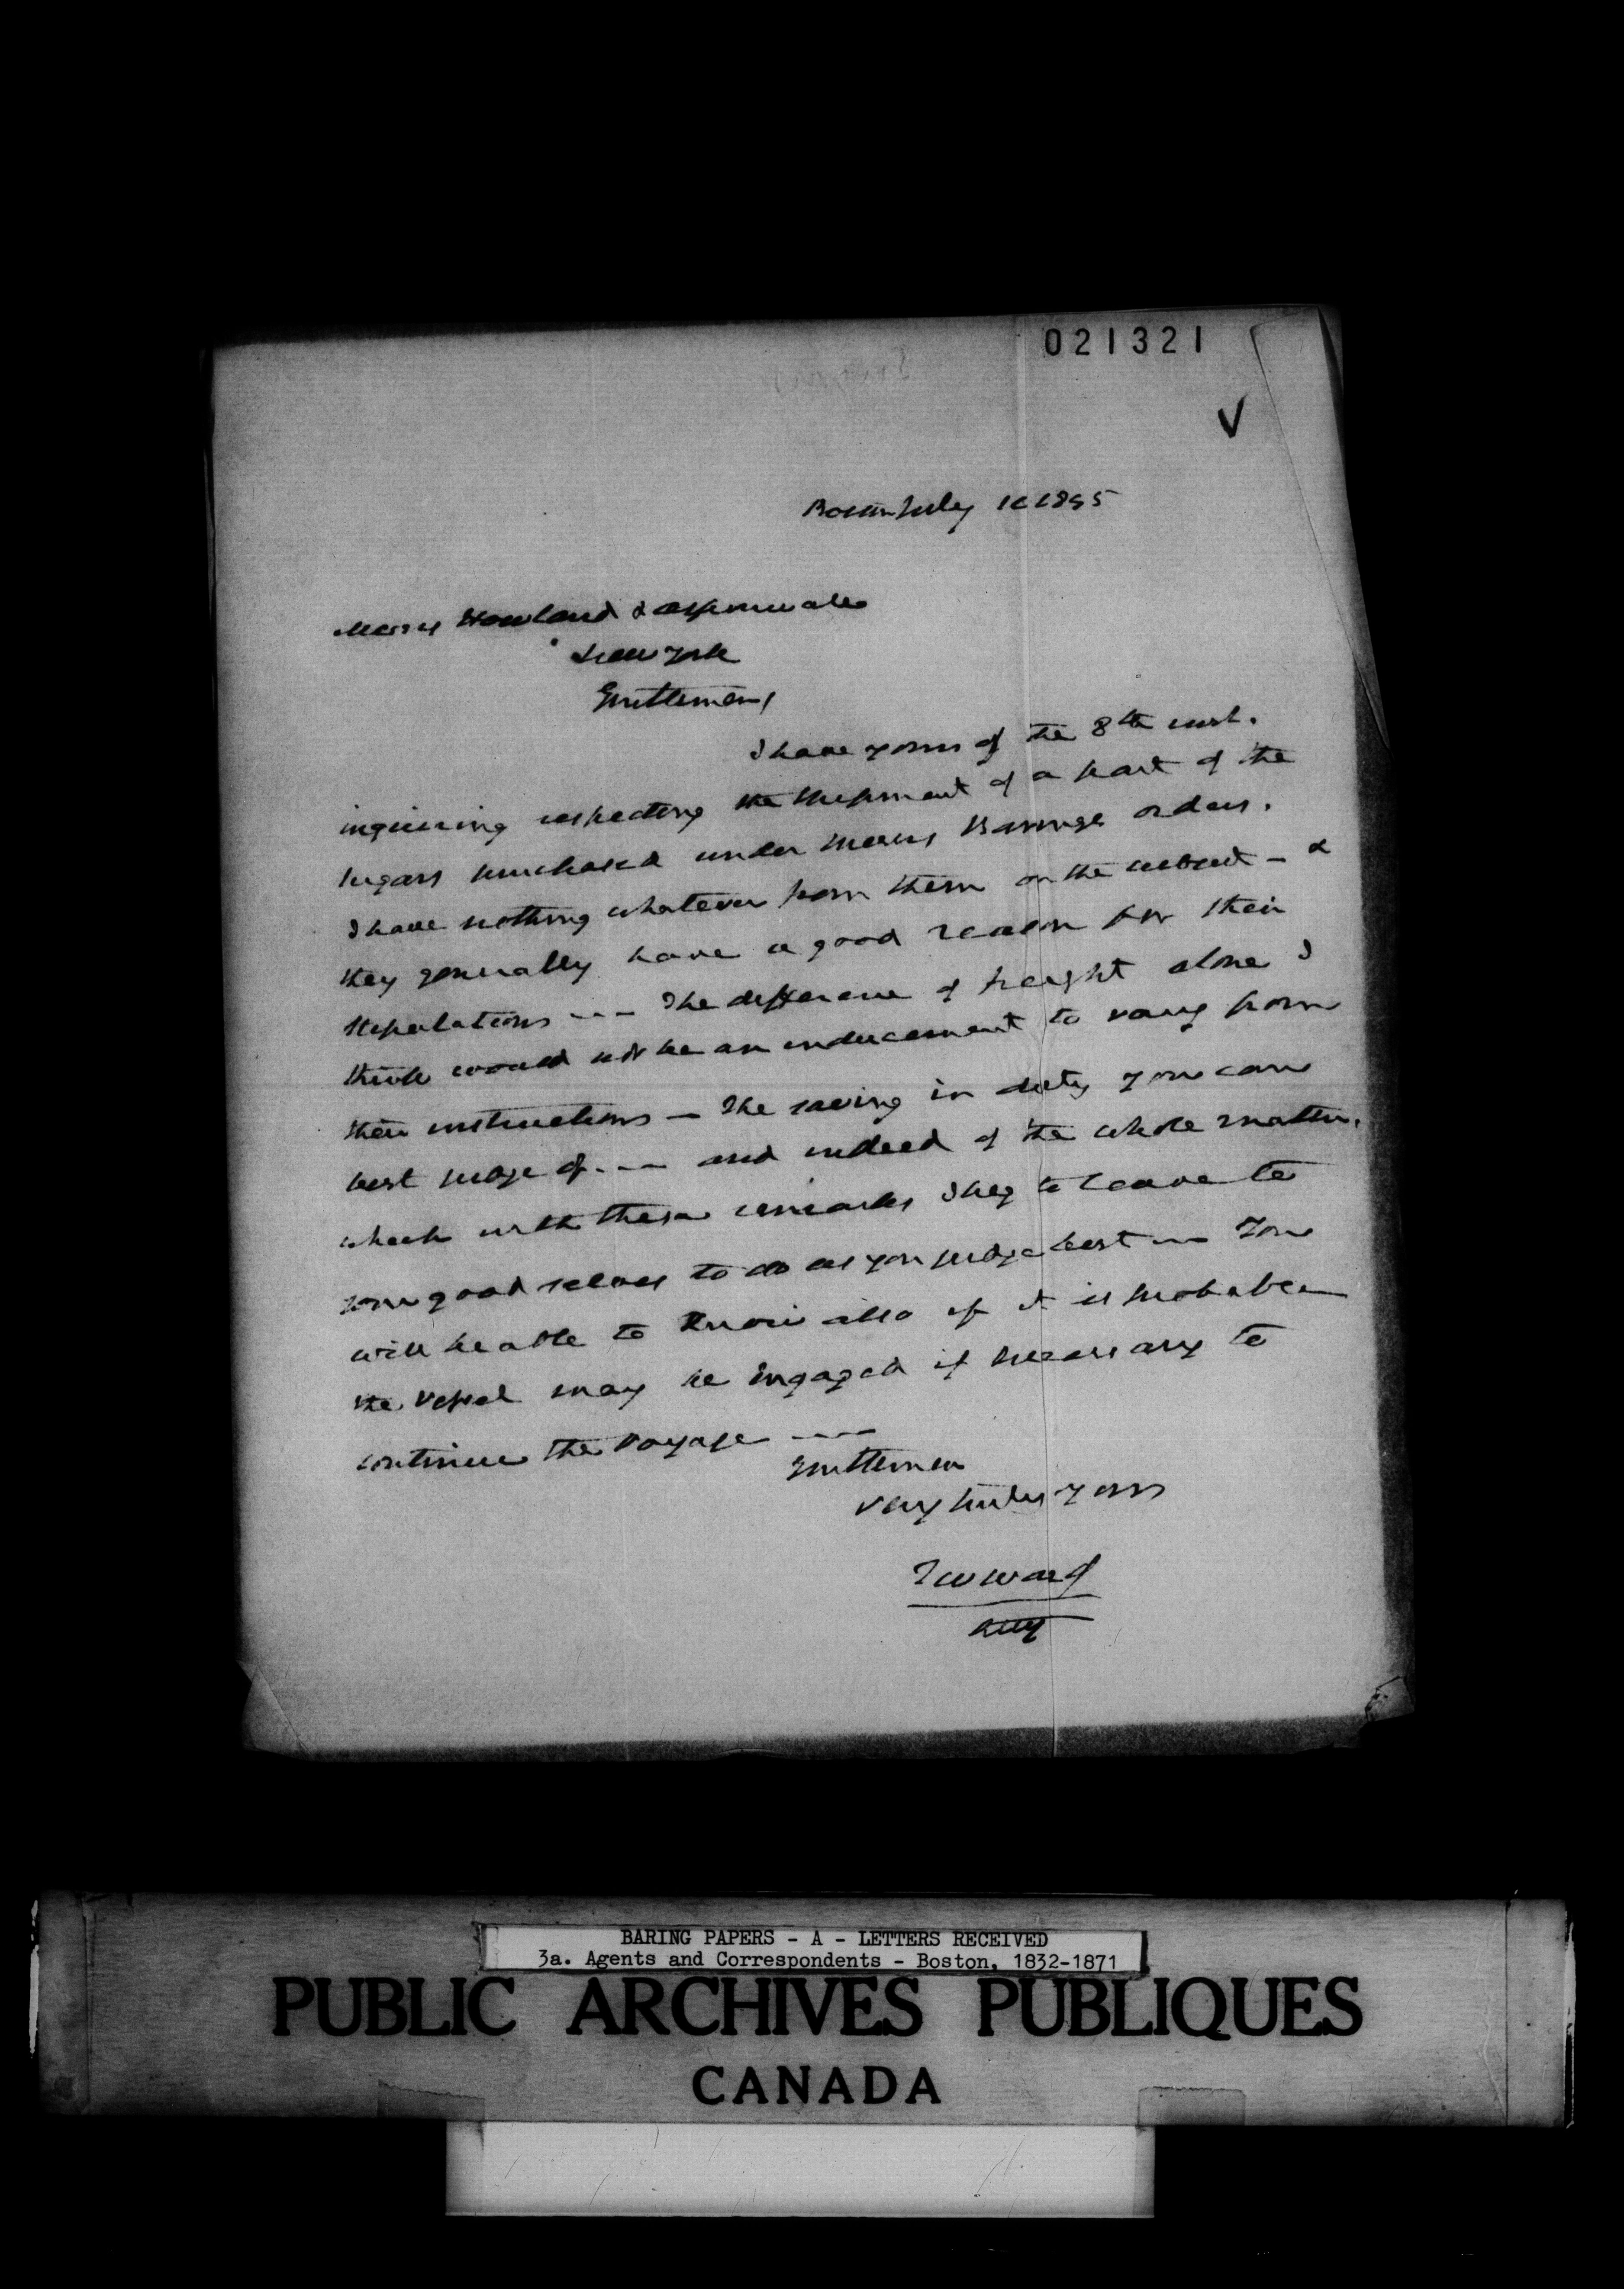 021321
V
Boston July 1855
Messrs Howland & Aspinwall
New York
Gentlemen,
I have yours of the 8th inst.
inquiring respecting the shipment of a part of the
sugars purchased under Messrs Barings orders.
I have nothing whatever from them on the subject - &
they generally have a good reason for their
stipulations --- The difference of freight alone I
think would not be an inducement to vary from
their instructions - The saving in duty you can
best judge of --- and indeed of the whole matter.
which with these remarks I beg to leave to
your good selves to do as you judge best -- You
will be able to know also if it is probable
the vessel may be engaged if necessary to
continue the voyage ----
Gentlemen
very truly yours
T W Ward
Atty
BARING PAPERS - A - LETTERS RECEIVED
3a. Agents and Correspondents - Boston, 1832-1871
PUBLIC ARCHIVES PUBLIQUES
CANADA